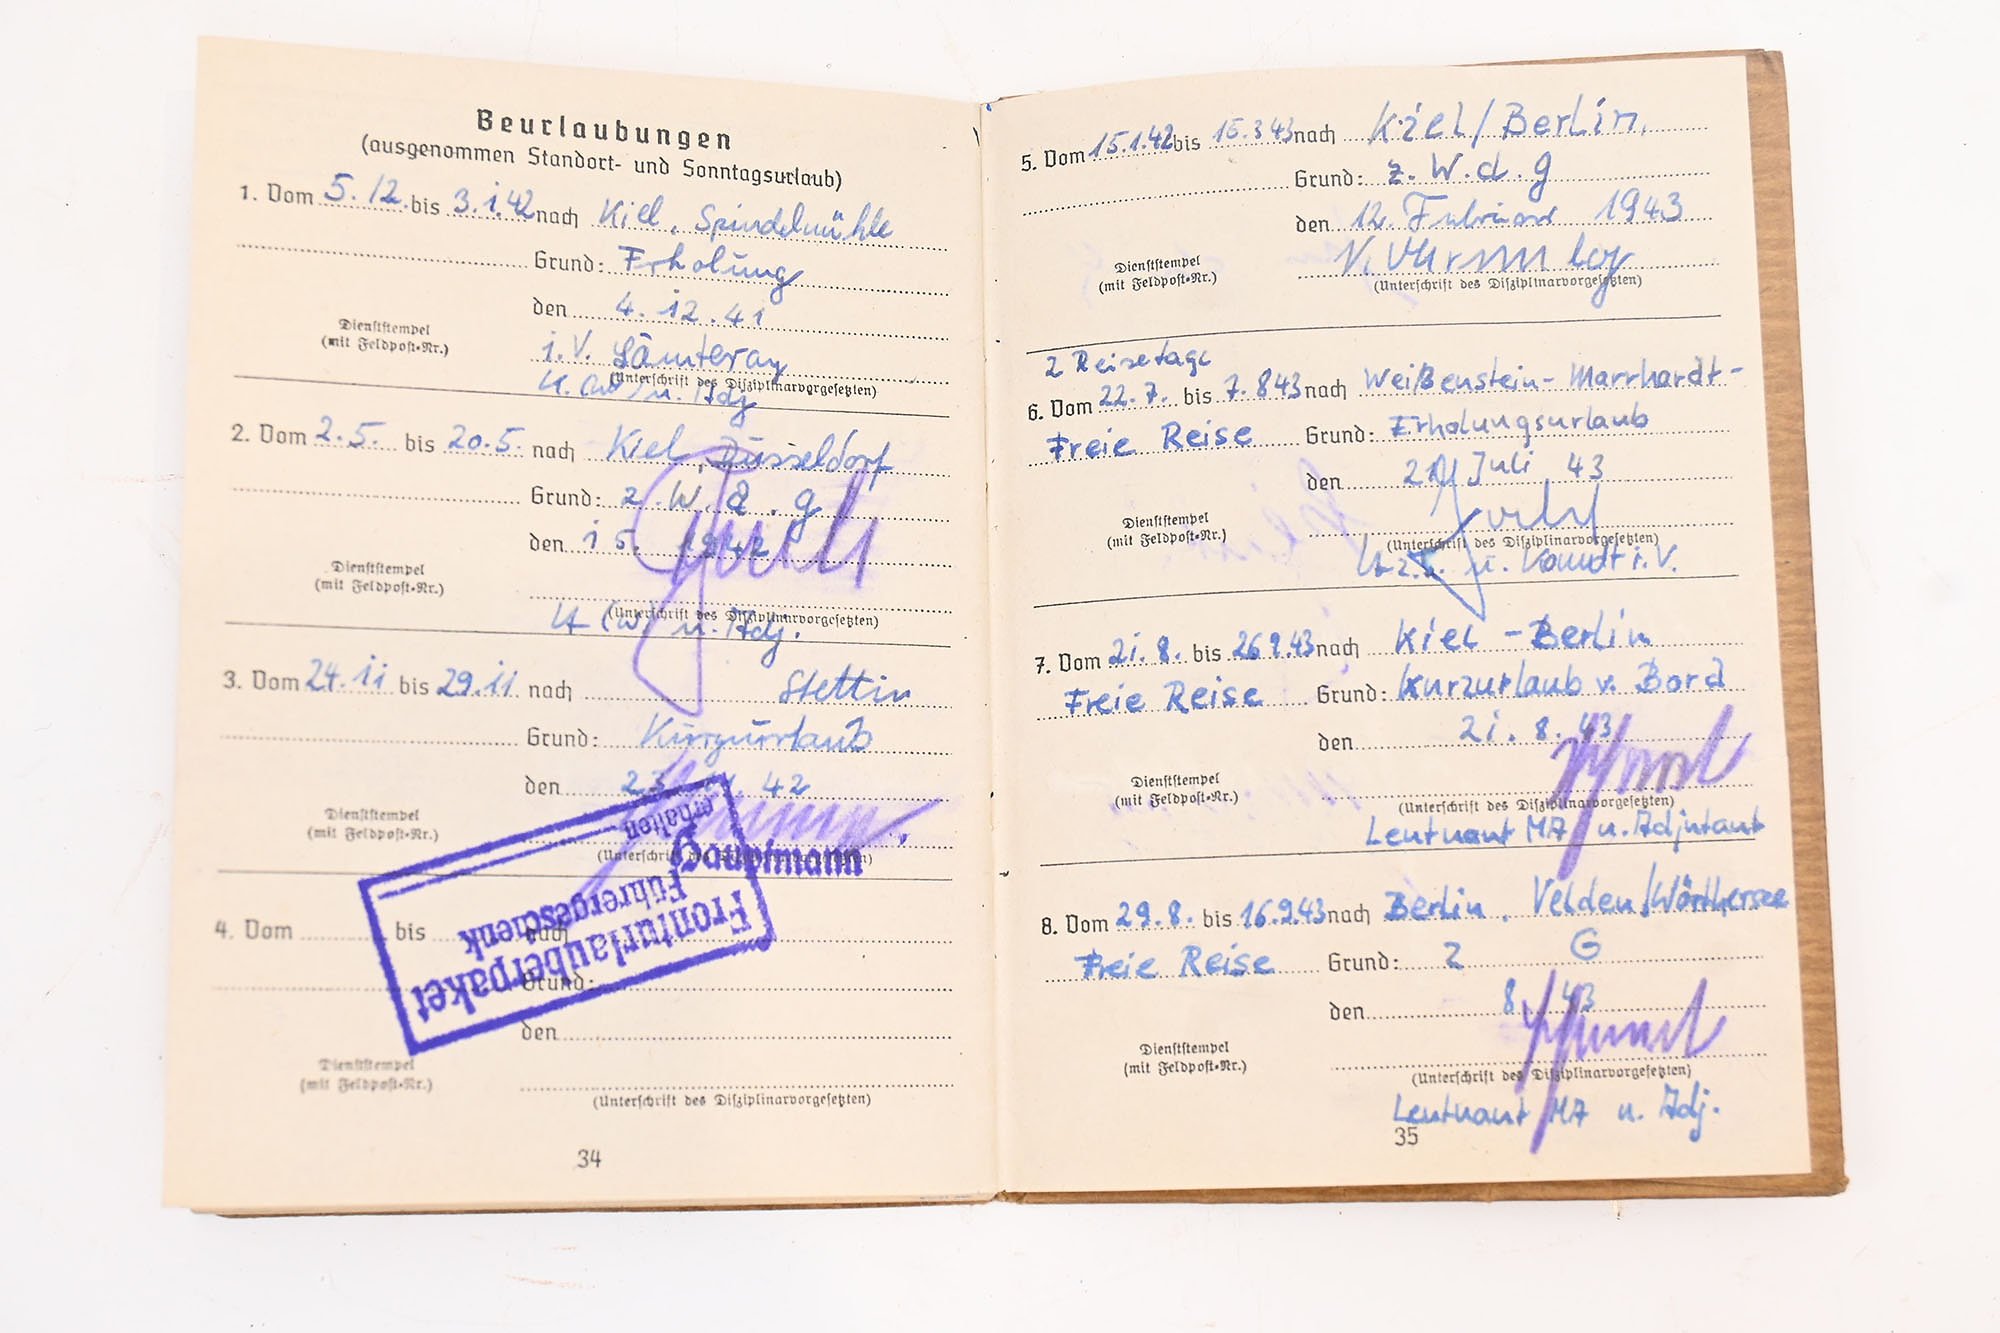 Beurlaubungen
(ausgenommen Standort- und Sonntagsurlaub)
1. Vom 5.12. bis 3.1.42 nach Kiel, Spindelmühle
Grund: Erholung
den 4.12.41
Dienststempel
(mit Feldpost-Nr.)
i.V.
(Unterschrift des Disziplinarvorgesetzten)
u. Adj
2. Vom 2.5. bis 20.5. nach Kiel, Düsseldorf
Grund: z.W.d.g
den 1 5. 1942
Dienststempel
(mit Feldpost-Nr.)
(Unterschrift des Disziplinarvorgesetzten)
u. Adj.
3. Vom 24.11 bis 29.11 nach Stettin
Grund: Kurzurlaub
den 23. 42
Dienststempel
(mit Feldpost-Nr.)
(Unterschrift des Disziplinarvorgesetzten)
Fronturlauberpaket
Führergeschenk
erhalten
4. Vom bis nach
Grund:
den
Dienststempel
(mit Feldpost-Nr.)
(Unterschrift des Disziplinarvorgesetzten)
34
5. Vom 15.1.42 bis 15.3.43 nach Kiel/Berlin.
Grund: z.W.d.g
den 12. Februar 1943
Dienststempel
(mit Feldpost-Nr.)
(Unterschrift des Disziplinarvorgesetzten)
2 Reisetage
6. Vom 22.7. bis 7.8.43 nach Weißenstein-Marrhardt-
Freie Reise Grund: Erholungsurlaub
den Juli 43
Dienststempel
(mit Feldpost-Nr.)
(Unterschrift des Disziplinarvorgesetzten)
u. Komdt i.V.
7. Vom 21.8. bis nach Kiel - Berlin
Freie Reise Grund: Kurzurlaub v. Bord
den 21.8.43
Dienststempel
(mit Feldpost-Nr.)
(Unterschrift des Disziplinarvorgesetzten)
Leutnant MA u. Adjutant
8. Vom 29.8. bis 16.9.43 nach Berlin, Velden/Wörthersee
Freie Reise Grund: 2 G
den 8. 43
Dienststempel
(mit Feldpost-Nr.)
(Unterschrift des Disziplinarvorgesetzten)
Leutnant MA u. Adj.
35